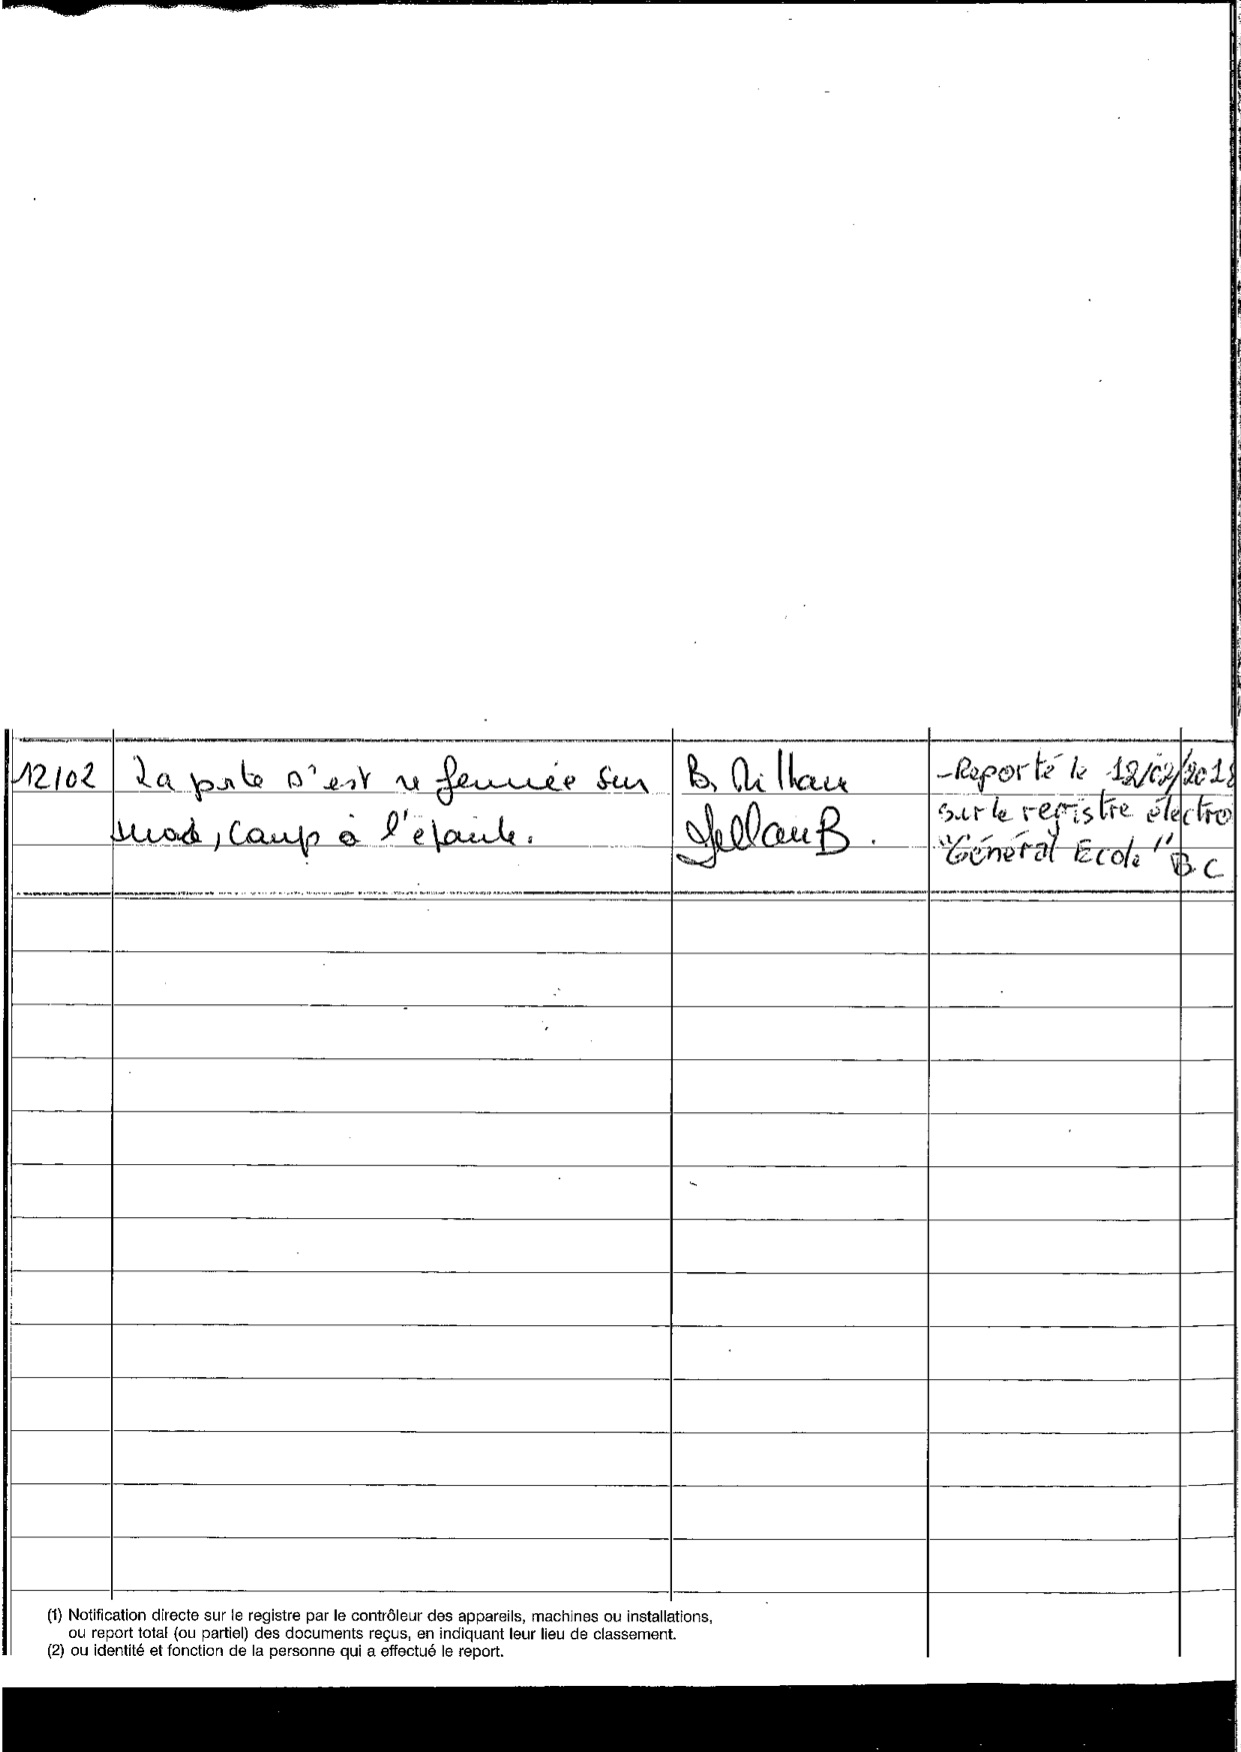 12/02 La porte s'est refermée sur B. Millau -Reporté le 12/02/2018
moi, coup à l'épaule. sur le registre électro
"Général Ecole" BC
(1) Notification directe sur le registre par le contrôleur des appareils, machines ou installations,
ou report total (ou partiel) des documents reçus, en indiquant leur lieu de classement.
(2) ou identité et fonction de la personne qui a effectué le report.